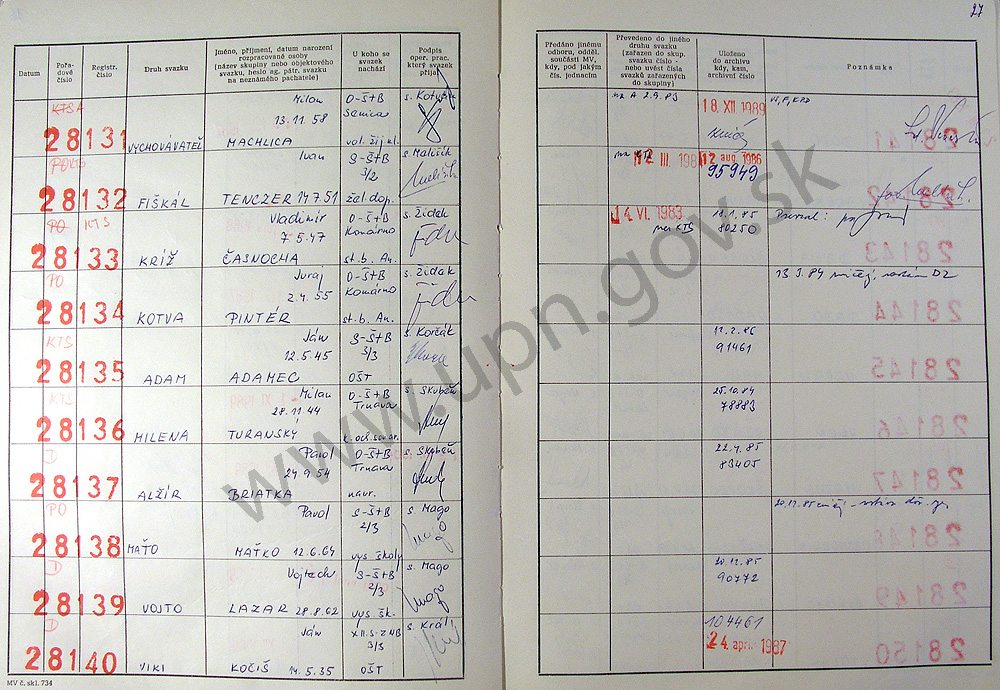 27
Datum
Pořa-
dové
číslo
Registr.
číslo
Druh svazku
Jméno, příjmení, datum narození
rozpracované osoby
(název skupiny nebo objektového
svazku, heslo ag. pátr. svazku
na neznámého pachatele)
U koho se
svazek
nachází
Podpis
oper. prac.
který svazek
přijal
Předáno jinému
odboru, odděl.
součásti MV,
kdy, pod jakým
čís. jednacím
Převedeno do jiného
druhu svazku
(zařazen do skup.
svazku číslo -
nebo uvést čísla
svazků zařazených
do skupiny)
Uloženo
do archivu
kdy, kam,
archivní číslo
Poznámka
KTS
28131
VYCHOVÁVATEĽ
Milan
13.11.58
MACHLICA
O-Š+B
Senica
28132
FIŠKÁL
Ivan
TENCZER 14.7.51
S-Š+B
3/2
žel. dop.
s. Mališík
PO KTS
28133
KRÍŽ
Vladimír
7.5.47
ČASNOCHA
O-Š+B
Komárno
st.b. An.
s. Židak
PO
28134
KOTVA
Juraj
2.4.55
PINTÉR
O-Š+B
Komárno
st.b. An.
s. Židak
KTS
28135
ADAM
Ján
12.5.45
ADAMEC
S-Š+B
3/3
OŠT
s. Korčák
KTS
28136
MILENA
Milan
28.11.44
TURANSKÝ
O-Š+B
Trnava
D
28137
ALŽÍR
Pavol
24.9.54
BRIATKA
O-Š+B
Trnava
PO
28138
MAŤO
Pavol
MAŤKO 12.6.64
S-Š+B
2/3
vys. školy
s. Mago
D
28139
VOJTO
Vojtech
LAZAR 28.8.62
S-Š+B
2/3
vys. šk.
s. Mago
D
28140
VIKI
Ján
KOČIŠ 14.5.35
XII.S-ZNB
3/3
OŠT
s. Kráľ
A 2.9.83
18. XII 1989
12 aug. 1986
95949
14. VI. 1983
18.1.85
80250
13.3.84
12.2.86
91461
25.10.84
78883
22.4.85
83405
20.12.85
90772
104461
24. apr. 1987
MV č. skl. 734
www.upn.gov.sk